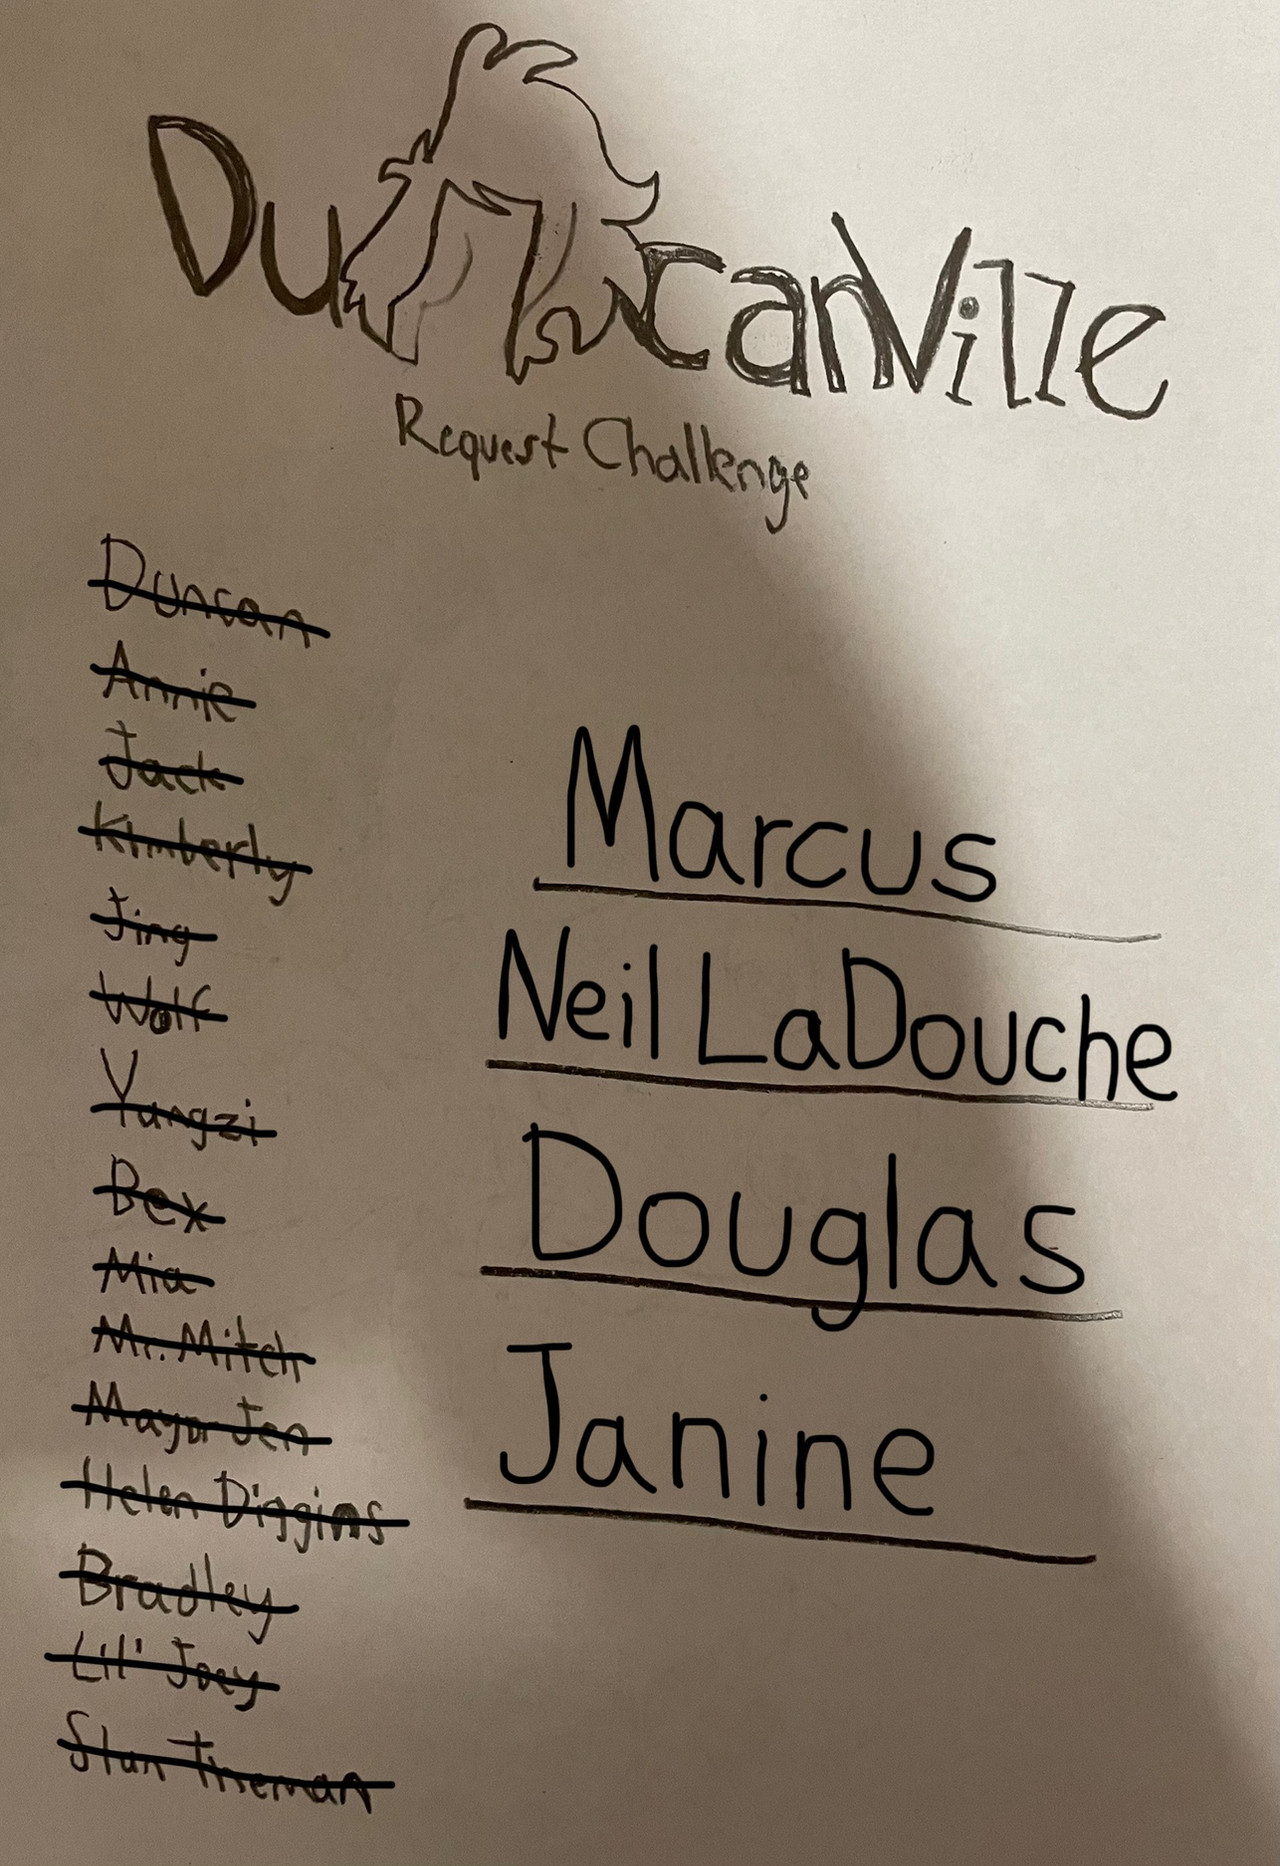 DuncanVille
Request Challenge
Duncan
Annie
Jack
Kimberly
Jing
Wolf
Yangzi
Bex
Mia
Mr. Mitch
Mayor Jen
Helen Diggins
Bradley
Lil' Joey
Stan
Marcus
Neil LaDouche
Douglas
Janine